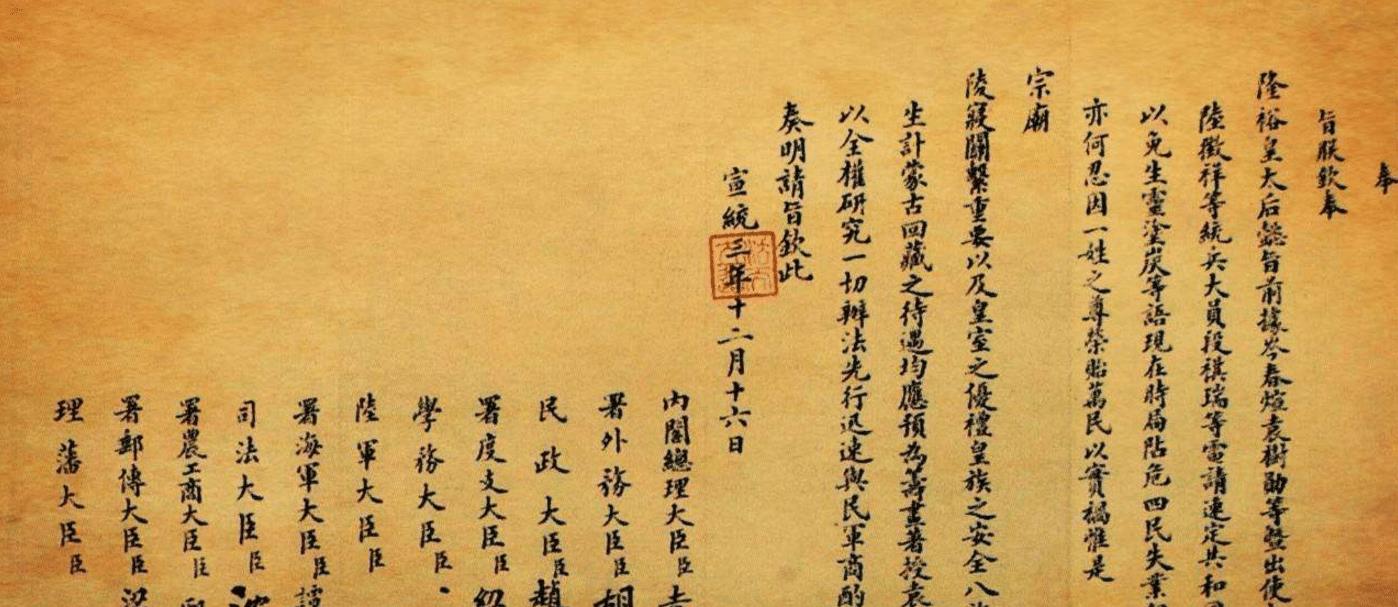 奉
旨朕欽奉
隆裕皇太后懿旨前據岑春煊袁樹勛等暨出使
陸徵祥等統兵大員段祺瑞等電請速定共和
以免生靈塗炭等語現在時局阽危四民失業
亦何忍因一姓之尊榮貽萬民以實禍惟是
宗廟
陵寢關繫重要以及皇室之優禮皇族之安全八
生計蒙古回藏之待遇均應預為籌畫著授袁
以全權研究一切辦法先行迅速與民軍商酌
奏明請旨欽此
宣統三年十二月十六日
內閣總理大臣臣
署外務大臣臣胡
民政大臣臣趙
署度支大臣臣紹
學務大臣臣
陸軍大臣臣
署海軍大臣臣譚
司法大臣臣沈
署農工商大臣臣
署郵傳大臣臣梁
理藩大臣臣